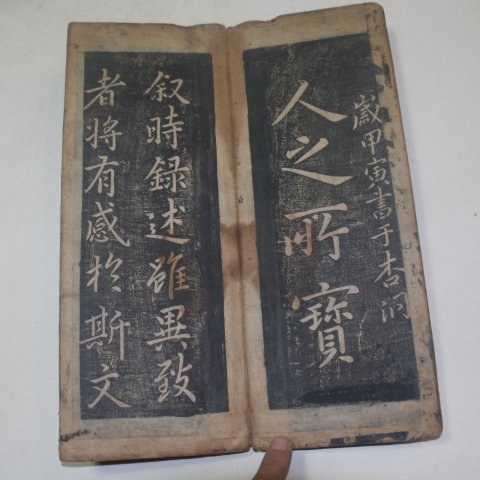 歲甲寅書于杏洞
人之所寶
叙時録述雖異致
者將有感於斯文